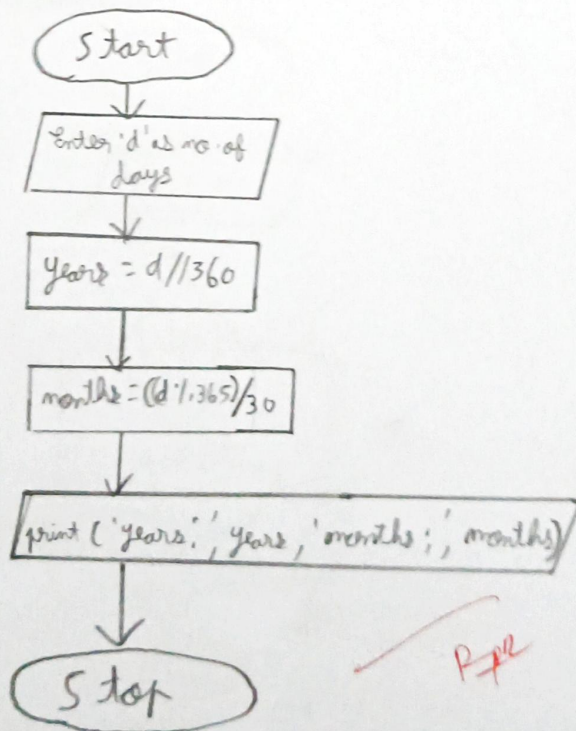 Start
Enter 'd' as no. of
days
years = d//360
months = ((d%365)/30
print ('years:', years, 'months:', months)
Stop